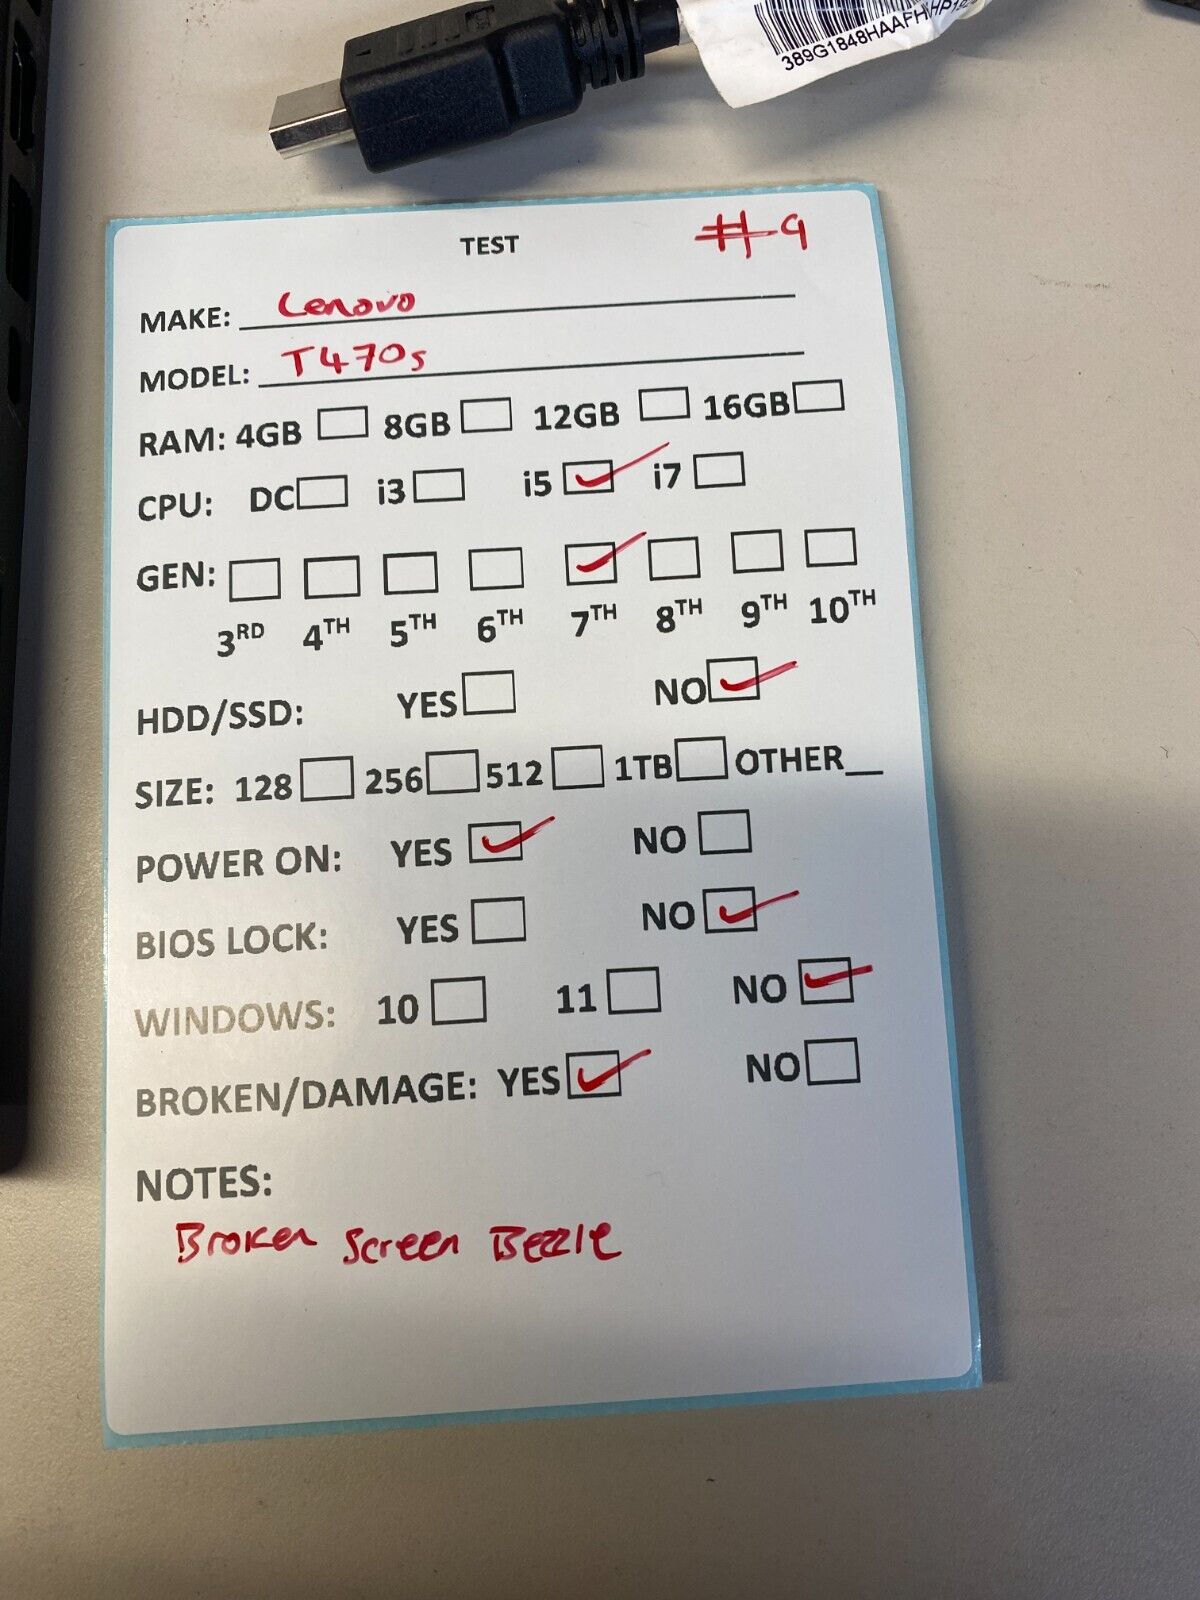 389G1848HAAFH
TEST #9
MAKE: Lenovo
MODEL: T470s
RAM: 4GB 8GB 12GB 16GB
CPU: DC i3 i5 ✓ i7
GEN: ✓
3RD 4TH 5TH 6TH 7TH 8TH 9TH 10TH
HDD/SSD: YES NO ✓
SIZE: 128 256 512 1TB OTHER__
POWER ON: YES ✓ NO
BIOS LOCK: YES NO ✓
WINDOWS: 10 11 NO ✓
BROKEN/DAMAGE: YES ✓ NO
NOTES:
Broken Screen Bezzle